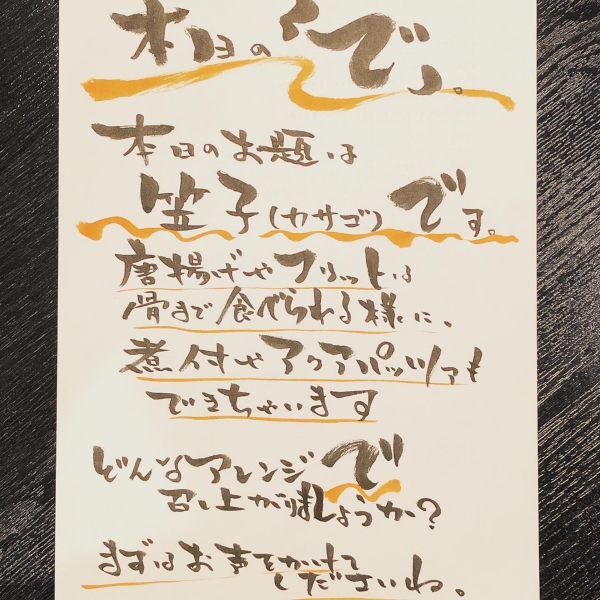 本日の「で」。
本日のお題は
笠子(カサゴ)です。
唐揚げやフリットは
骨まで食べられる様に、
煮付やアクアパッツァも
できちゃいます
どんなアレンジで
召し上がりましょうか?
まずはお声をかけて
くださいね。